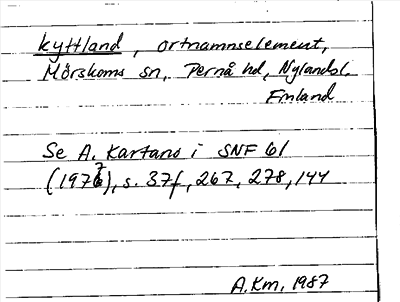 kyttland, ortnamnselement,
Mörskoms sn, Pernå hd, Nylandsl.
Finland
Se A. Kartano i SNF 61
(1973), s. 37f, 267, 278, 144
A.Km, 1987